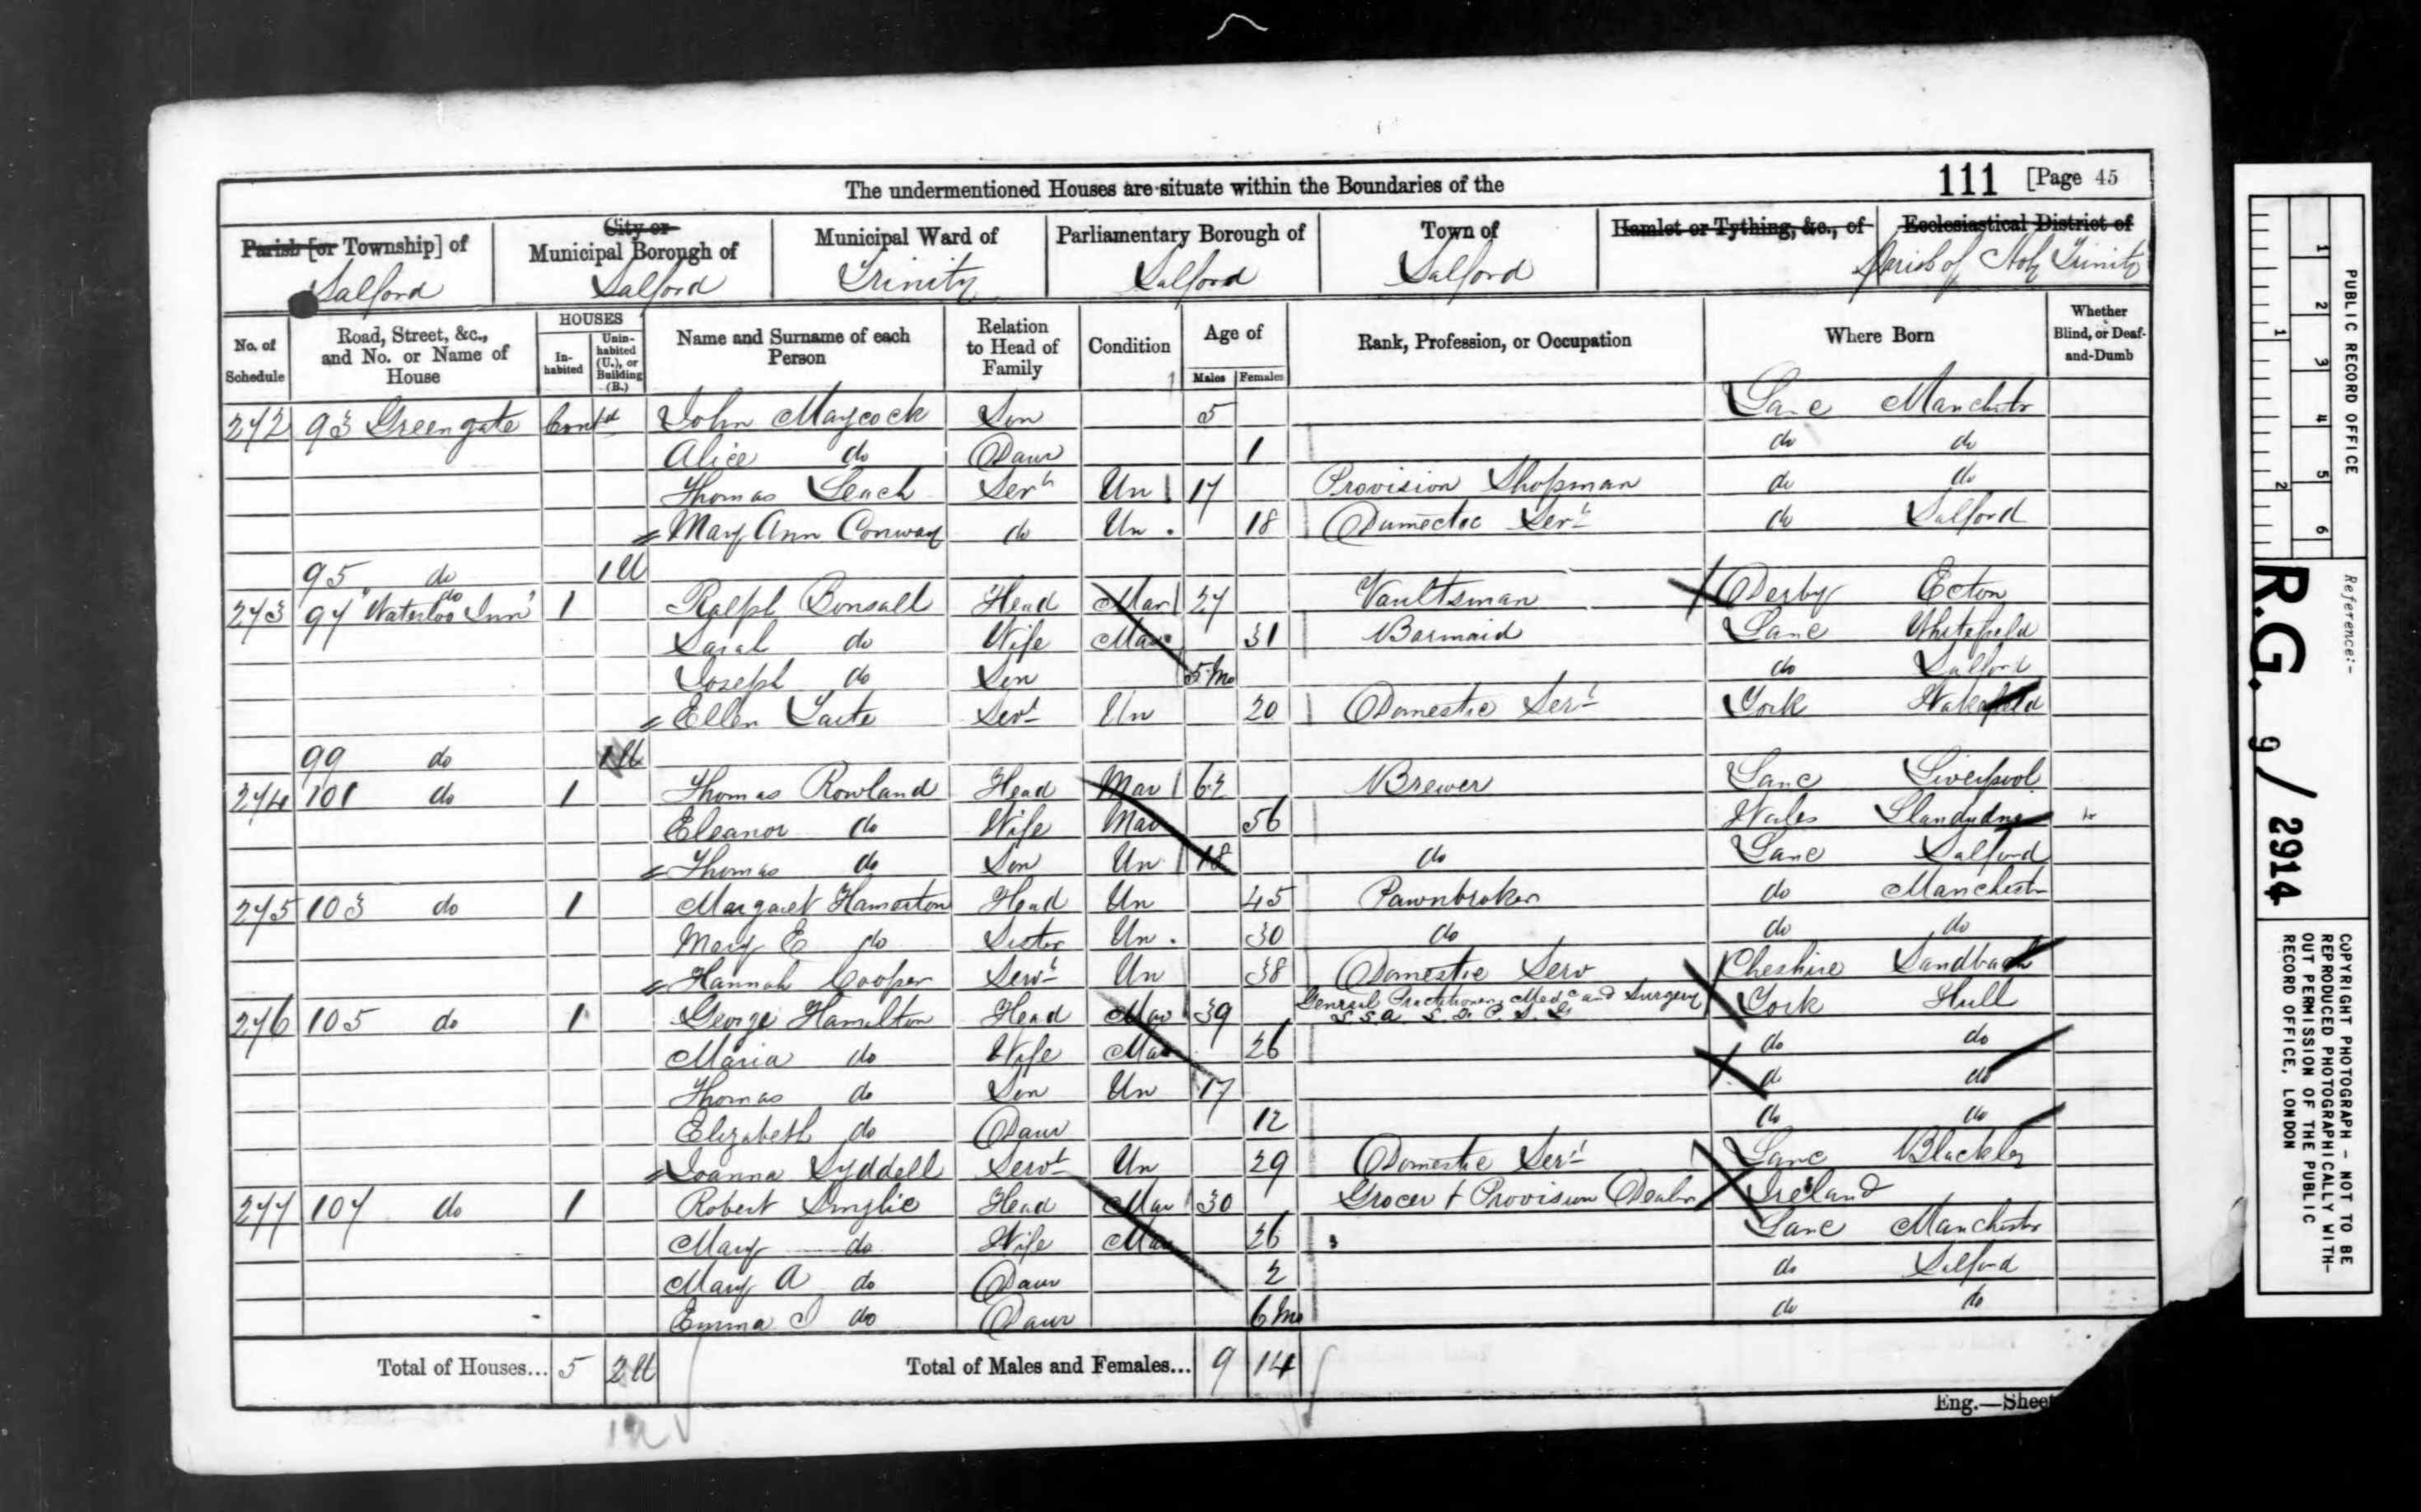 The undermentioned Houses are situate within the Boundaries of the
111 [Page 45
Parish [or Township] of
Salford
City or Municipal Borough of
Salford
Municipal Ward of
Trinity
Parliamentary Borough of
Salford
Town of
Salford
Hamlet or Tything, &c., of
Ecclesiastical District of
Parish of Holy Trinity
No. of Schedule
Road, Street, &c., and No. or Name of House
HOUSES
In-habited
Unin-habited (U.), or Building (B.)
Name and Surname of each Person
Relation to Head of Family
Condition
Age of
Males Females
Rank, Profession, or Occupation
Where Born
Whether Blind, or Deaf-and-Dumb
272 93 Greengate Contd John Maycock Son 5 Lanc Manchstr
Alice do Daur 1 do do
Thomas Leach Servt Un 17 Provision Shopman do do
Mary Ann Conway do Un 18 Domestic Servt do Salford
95 do 1U
273 97 "Waterloo Inn" do 1 Ralph Bonsall Head Mar 27 Vaultsman Derby Ecton
Sarah do Wife Mar 31 Barmaid Lanc Whitefield
Joseph do Son 5 Mo do Salford
Ellen Servt Un 20 Domestic Servt York Wakefield
99 do 1U
274 101 do 1 Thomas Rowland Head Mar 63 Brewer Lanc Liverpool
Eleanor do Wife Mar 56 Wales
Thomas do Son Un 18 do Lanc Salford
275 103 do 1 Margaret Hamerton Head Un 45 Pawnbroker do Manchestr
Mary E do Sister Un 30 do do do
Hannah Cooper Servt Un 38 Domestic Serv Cheshire Sandbach
276 105 do 1 George Hamilton Head Mar 39 General Practitioner Medc and Surgery York Hull
Maria do Wife Mar 26 do do
Thomas do Son Un 17 do do
Elizabeth do Daur 12 do do
Joanna Lyddell Servt Un 29 Domestic Servt Lanc Blackley
277 107 do 1 Robert Smylie Head Mar 30 Grocer & Provision Dealer Ireland
Mary do Wife Mar 26 Lanc Manchester
Mary A do Daur 2 do Salford
Emma J do Daur 6 Mo do do
Total of Houses... 5 2U Total of Males and Females... 9 14
Eng.—Sheet
PUBLIC RECORD OFFICE
1 2 3 4 5 6
1 2
Reference:-
R.G. 9/2914
COPYRIGHT PHOTOGRAPH - NOT TO BE
REPRODUCED PHOTOGRAPHICALLY WITH-
OUT PERMISSION OF THE PUBLIC
RECORD OFFICE, LONDON